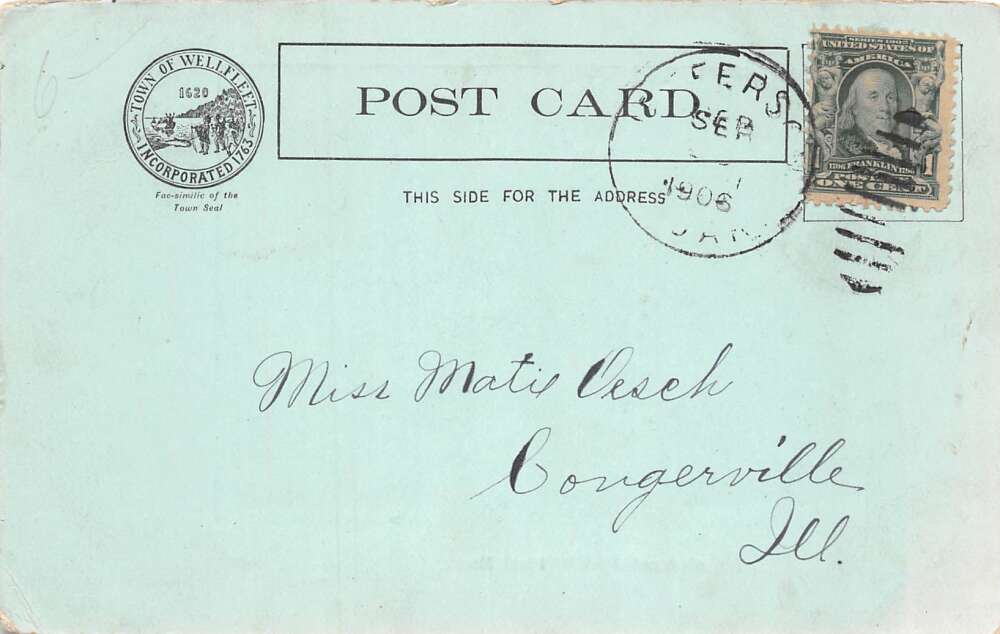 6
TOWN OF WELLFLEET
1620
INCORPORATED 1763
Fac-simile of the
Town Seal
POST CARD
THIS SIDE FOR THE ADDRESS
SEP
1906
SERIES 1902
UNITED STATES OF
AMERICA
1706 FRANKLIN 1790
1
ONE CENT
Miss Matie Oesch
Congerville
Ill.